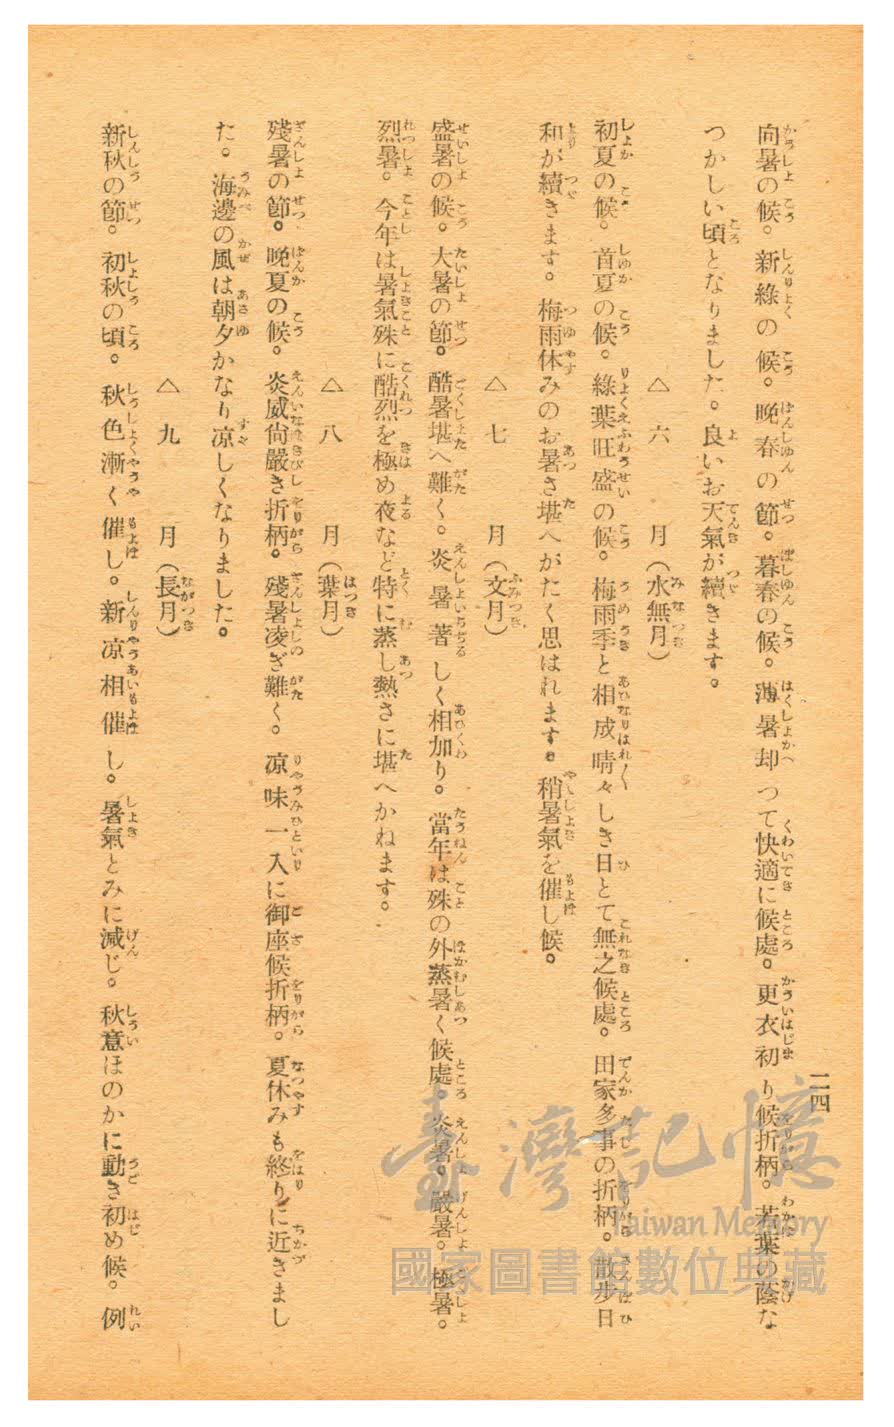 二四
向暑の候。新綠の候。晩春の節。暮春の候。薄暑却つて快適に候處。更衣初り候折柄。若葉の蔭な
つかしい頃となりました。良いお天氣が續きます。
△六月(水無月)
初夏の候。首夏の候。綠葉旺盛の候。梅雨季と相成晴々しき日とて無之候處。田家多事の折柄。散步日
和が續きます。梅雨休みのお暑さ堪へがたく思はれます。稍暑氣を催し候。
△七月(文月)
盛暑の候。大暑の節。酷暑堪へ難く。炎暑著しく相加り。當年は殊の外蒸暑く候處。炎暑。嚴暑。極暑。
烈暑。今年は暑氣殊に酷烈を極め夜など特に蒸し熱さに堪へかねます。
△八月(葉月)
殘暑の節。晩夏の候。炎威尙嚴き折柄。殘暑凌ぎ難く。凉味一入に御座候折柄。夏休みも終りに近きまし
た。海邊の風は朝夕かなり凉しくなりました。
△九月(長月)
新秋の節。初秋の頃。秋色漸く催し。新凉相催し。暑氣とみに減じ。秋意ほのかに動き初め候。例
臺灣記憶
Taiwan Memory
國家圖書館數位典藏